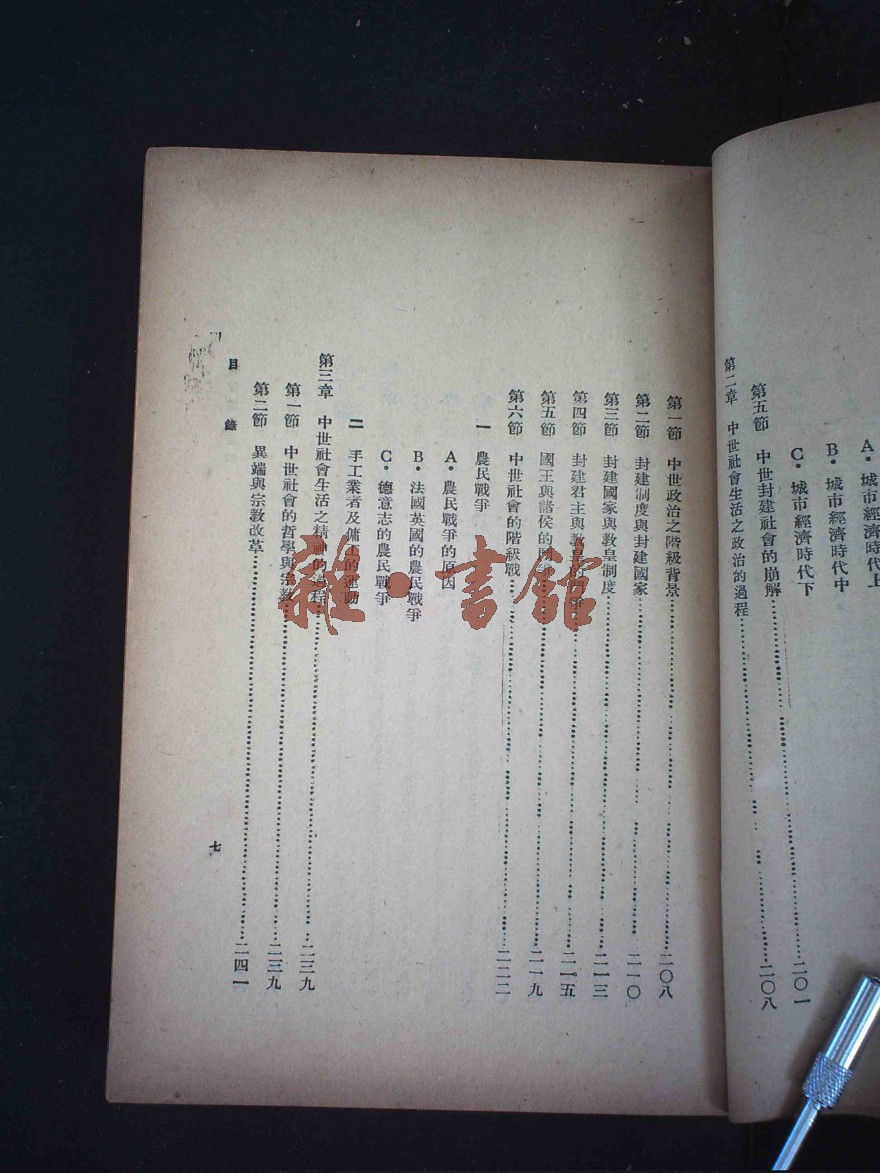 A・城市經濟時代上
B・城市經濟時代中
C・城市經濟時代下
第五節 中世封建社會的崩解……二〇一
第二章 中世社會生活之政治的過程……二〇八
第一節 中世政治之階級背景……二〇八
第二節 封建制度與封建國家……二一〇
第三節 封建國家與教皇制度……二一三
第四節 封建君主與教皇的鬥爭……二一五
第五節 國王與諸侯的鬥爭……二一九
第六節 中世社會的階級戰……二二二
一 農民戰爭
A・農民戰爭的原因
B・法國英國的農民戰爭
C・德意志的農民戰爭
二 手工業者及傭工的運動
第三章 中世社會生活之精神的過程……二三九
第一節 中世社會的哲學與宗教……二三九
第二節 異端與宗教改革……二四一
目錄
七
雜・書館